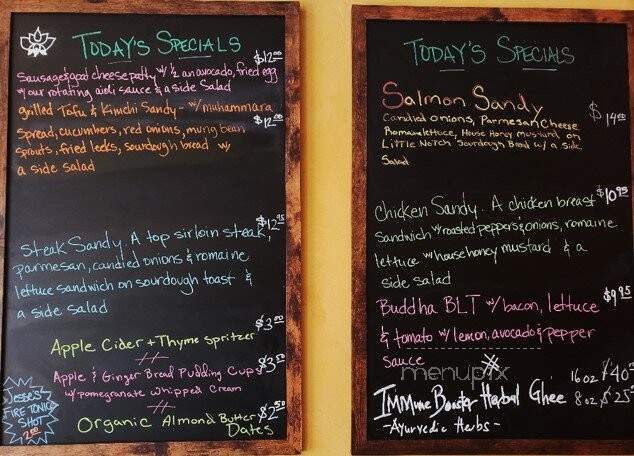 TODAY'S SPECIALS
$12.00
Sausage & goat cheese patty w/ ½ an avocado, fried egg
w/ our rotating aioli sauce & a side Salad
grilled Tofu & Kimchi Sandy - w/ muhammara
$12.00
spread, cucumbers, red onions, mung bean
sprouts, fried leeks, sourdough bread w/
a side salad
$12.95
Steak Sandy. A top sirloin steak,
parmesan, candied onions & romaine
lettuce sandwich on sourdough toast &
a side salad
$3.00
Apple Cider + Thyme Spritzer
$3.50
Apple & Ginger Bread Pudding Cups
w/ pomegranate whipped Cream
$2.50
Organic Almond Butter
Dates
Jesse's
FIRE TONIC
SHOT
2.00
TODAY'S SPECIALS
Salmon Sandy
$14.00
Candied Onions, Parmesan Cheese
Romaine lettuce, House Honey Mustard on
Little Notch Sourdough Bread w/ a side
Salad
$10.95
Chicken Sandy. A chicken breast
sandwich w/ roasted peppers & onions, romaine
lettuce w/ house honey mustard & a
side salad
$9.95
Buddha BLT w/ bacon, lettuce
& tomato w/ lemon, avocado & pepper
sauce
menupix
16 oz $40
Immune Booster Herbal Ghee 8 oz $25
- Ayurvedic Herbs -